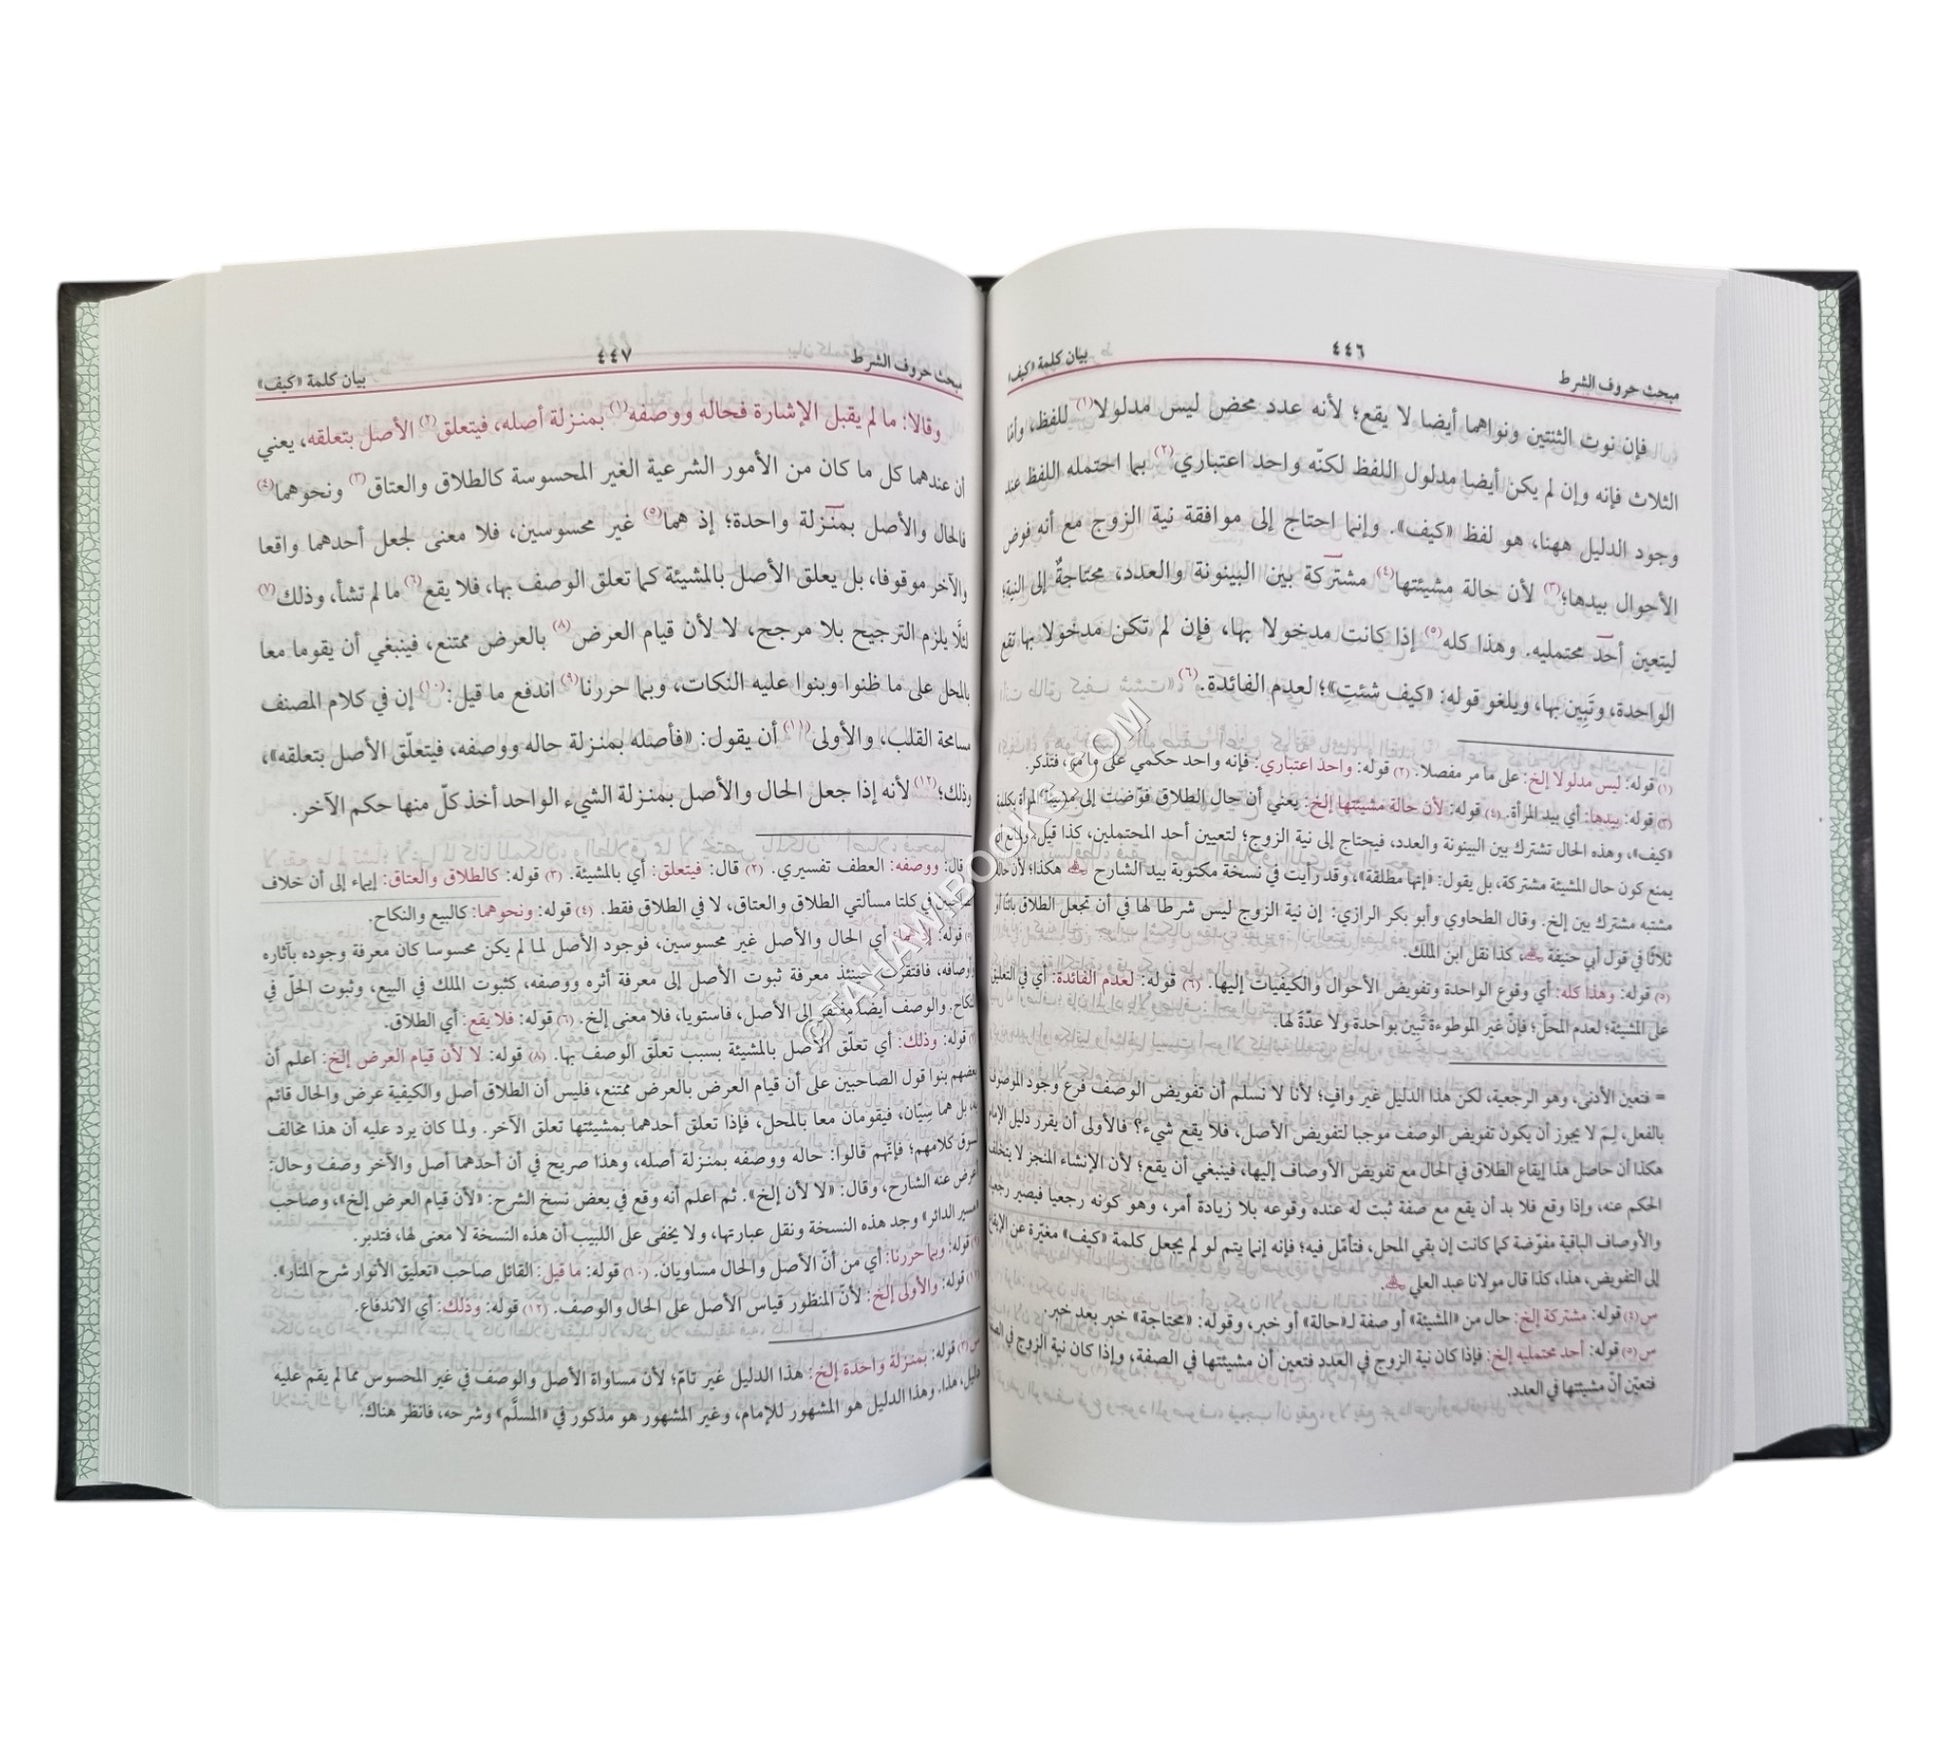 مبحث حروف الشرط ٤٤٦ بيان كلمة «كيف»
فإن نوت الثنتين ونواهما أيضا لا يقع؛ لأنه عدد محض ليس مدلولا(١) للفظ، وأمّا
الثلاث فإنه وإن لم يكن أيضا مدلول اللفظ لكنّه واحد اعتباري(٢) بما احتمله اللفظ عند
وجود الدليل ههنا، هو لفظ «كيف». وإنما احتاج إلى موافقة نية الزوج مع أنه فوض
الأحوال بيدها؛(٣) لأن حالة مشيئتها(٤) مشتركة بين البينونة والعدد، محتاجةٌ إلى النية؛
ليتعين أحد محتمليه. وهذا كله(٥) إذا كانت مدخولا بها، فإن لم تكن مدخولا بها تقع
الواحدة، وتَبِين بها، ويلغو قوله: «كيف شئتِ»؛ لعدم الفائدة.(٦)
(١) قوله: ليس مدلولا إلخ: على ما مر مفصلا. (٢) قوله: واحد اعتباري: فإنه واحد حكمي على ما مرّ، فتذكر.
(٣) قوله: بيدها: أي بيد المرأة. (٤) قوله: لأن حالة مشيئتها إلخ: يعني أن حال الطلاق فوّضت إلى مشيئة المرأة بكلمة
«كيف»، وهذه الحال تشترك بين البينونة والعدد، فيحتاج إلى نية الزوج؛ لتعيين أحد المحتملين، كذا قيل، ولمانع أن
يمنع كون حال المشيئة مشتركة، بل يقول: «إنها مطلقة»، وقد رأيت في نسخة مكتوبة بيد الشارح هكذا؛ لأن حالة
مشتبه مشترك بين إلخ. وقال الطحاوي وأبو بكر الرازي: إن نية الزوج ليس شرطا لها في أن تجعل الطلاق بائنًا أو
ثلاثًا في قول أبي حنيفة، كذا نقل ابن الملك.
(٥) قوله: وهذا كله: أي وقوع الواحدة وتفويض الأحوال والكيفيات إليها. (٦) قوله: لعدم الفائدة: أي في التعليق
على المشيئة؛ لعدم المحلّ؛ فإنّ غير الموطوءة تَبِين بواحدة ولا عدّةَ لها.
= فتعين الأدنى، وهو الرجعية، لكن هذا الدليل غير وافٍ؛ لأنا لا نسلم أن تفويض الوصف فرع وجود الموصوف
بالفعل، لِمَ لا يجوز أن يكون تفويض الوصف موجبا لتفويض الأصل، فلا يقع شيء؟ فالأولى أن يقرر دليل الإمام
هكذا أن حاصل هذا إيقاع الطلاق في الحال مع تفويض الأوصاف إليها، فينبغي أن يقع؛ لأن الإنشاء المنجز لا يتخلف
الحكم عنه، وإذا وقع فلا بد أن يقع مع صفة ثبت له عنده وقوعه بلا زيادة أمر، وهو كونه رجعيا فيصير رجعيا
والأوصاف الباقية مفوّضة كما كانت إن بقي المحل، فتأمّل فيه؛ فإنه إنما يتم لو لم يجعل كلمة «كيف» مغيّرة عن الإيقاع
إلى التفويض، هذا، كذا قال مولانا عبد العلي.
س(٤) قوله: مشتركة إلخ: حال من «المشيئة» أو صفة لـ«حالة» أو خبر، وقوله: «محتاجة» خبر بعد خبر.
س(٥) قوله: أحد محتمليه إلخ: فإذا كان نية الزوج في العدد فتعين أن مشيئتها في الصفة، وإذا كان نية الزوج في الصفة
فتعيّن أنّ مشيئتها في العدد.
مبحث حروف الشرط ٤٤٧ بيان كلمة «كيف»
وقالا: ما لم يقبل الإشارة فحاله ووصفه(١) بمنزلة أصله، فيتعلق(٢) الأصل بتعلقه، يعني
أن عندهما كل ما كان من الأمور الشرعية الغير المحسوسة كالطلاق والعتاق(٣) ونحوهما(٤)
فالحال والأصل بمنزلة واحدة؛ إذ هما(٥) غير محسوسين، فلا معنى لجعل أحدهما واقعا
والآخر موقوفا، بل يعلق الأصل بالمشيئة كما تعلق الوصف بها، فلا يقع(٦) ما لم تشأ، وذلك(٧)
لئلّا يلزم الترجيح بلا مرجح، لا لأن قيام العرض(٨) بالعرض ممتنع، فينبغي أن يقوما معا
بالمحل على ما ظنوا وبنوا عليه النكات، وبما حررنا(٩) اندفع ما قيل:(١٠) إن في كلام المصنف
مسامحة القلب، والأولى(١١) أن يقول: «فأصله بمنزلة حاله ووصفه، فيتعلّق الأصل بتعلقه»،
وذلك؛(١٢) لأنه إذا جعل الحال والأصل بمنزلة الشيء الواحد أخذ كلّ منها حكم الآخر.
قال: ووصفه: العطف تفسيري. (٢) قال: فيتعلق: أي بالمشيئة. (٣) قوله: كالطلاق والعتاق: إيماء إلى أن خلاف
في كلتا مسألتي الطلاق والعتاق، لا في الطلاق فقط. (٤) قوله: ونحوهما: كالبيع والنكاح.
قوله: إذ هما: أي الحال والأصل غير محسوسين، فوجود الأصل لما لم يكن محسوسا كان معرفة وجوده بآثاره
وأوصافه، فافتقرت حينئذ معرفة ثبوت الأصل إلى معرفة أثره ووصفه، كثبوت الملك في البيع، وثبوت الحلّ في
النكاح. والوصف أيضا مفتقر إلى الأصل، فاستويا، فلا معنى إلخ. (٦) قوله: فلا يقع: أي الطلاق.
قوله: وذلك: أي تعلّق الأصل بالمشيئة بسبب تعلّق الوصف بها. (٨) قوله: لا لأن قيام العرض إلخ: اعلم أن
بعضهم بنوا قول الصاحبين على أن قيام العرض بالعرض ممتنع، فليس أن الطلاق أصل والكيفية عرض والحال قائم
به، بل هما سِيّان، فيقومان معا بالمحل، فإذا تعلق أحدهما بمشيئتها تعلق الآخر. ولما كان يرد عليه أن هذا مخالف
لسوق كلامهم؛ فإنّهم قالوا: حاله ووصفه بمنزلة أصله، وهذا صريح في أن أحدهما أصل والآخر وصف وحال:
أعرض عنه الشارح، وقال: «لا لأن إلخ». ثم اعلم أنه وقع في بعض نسخ الشرح: «لأن قيام العرض إلخ»، وصاحب
«مسير الدائر» وجد هذه النسخة ونقل عبارتها، ولا يخفى على اللبيب أن هذه النسخة لا معنى لها، فتدبر.
قوله: وبما حررنا: أي من أنّ الأصل والحال مساويان. (١٠) قوله: ما قيل: القائل صاحب «تعليق الأنوار شرح المنار».
قوله: والأولى إلخ: لأنّ المنظور قياس الأصل على الحال والوصف. (١٢) قوله: وذلك: أي الاندفاع.
س(٣) قوله: بمنزلة واحدة إلخ: هذا الدليل غير تامّ؛ لأن مساواة الأصل والوصف في غير المحسوس مما لم يقم عليه
دليل، هذا. وهذا الدليل هو المشهور للإمام، وغير المشهور هو مذكور في «المسلَّم» وشرحه، فانظر هناك.
©TAHAWIBOOKS.COM